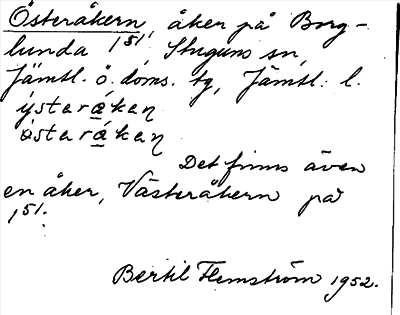 Österåkern, åker på Borg-
lunda 1⁵¹, Stuguns sn,
Jämtl. ö. doms. tg, Jämtl. l.
ýsterákeɳ
østerákeɳ
Det finns även
en åker, Västeråkern på
1⁵¹.
Bertil Flemström 1952.